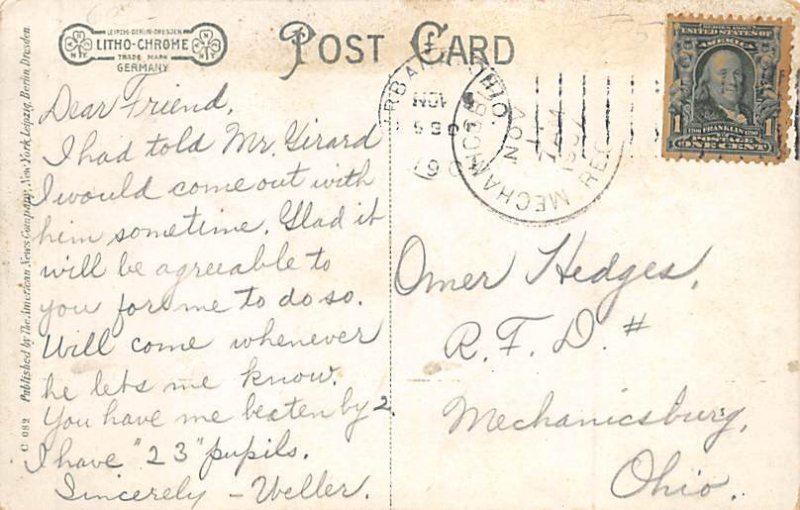 LEIPZIG-BERLIN-DRESDEN
LITHO-CHROME
TRADE MARK
GERMANY
POST CARD
C 082 Published by The American News Company, New York, Leipzig, Berlin, Dresden.
Dear Friend,
I had told Mr. Girard
I would come out with
him sometime. Glad it
will be agreeable to
you for me to do so.
Will come whenever
he lets me know.
You have me beaten by 2.
I have "23" pupils.
Sincerely - Weller.
URBANA, OHIO
NOV
530
190
MECHANICSBURG
NOV
7
1907
REC
SERIES 1902
UNITED STATES OF
AMERICA
1706 FRANKLIN 1790
POSTAGE
1 ONE CENT 1
Omer Hedges,
R.F.D. #
Mechanicsburg,
Ohio.